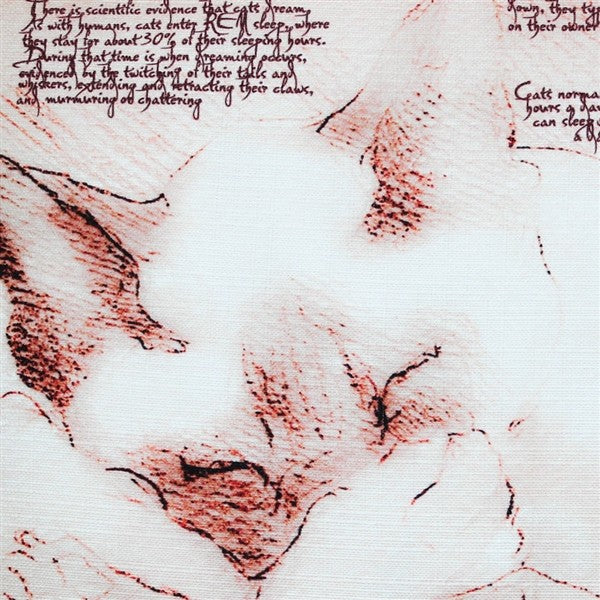 There is scientific evidence that cats dream.
As with humans, cats enter REM sleep, where
they stay for about 30% of their sleeping hours.
During that time is when dreaming occurs,
evidenced by the twitching of their tails and
whiskers, extending and retracting their claws,
and murmuring or chattering
down, they typ
on their owner
Cats norma
hours a da
can sleep
a da